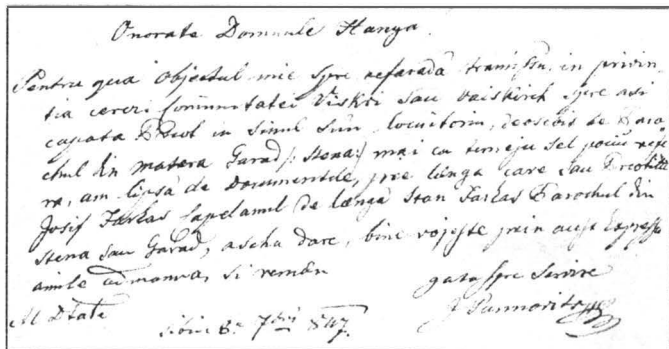 Onorate Domnule Hanya.
Pentru qua Objectul mie spre referadă transissu, in privin-
tia cereri Communitatei Viskri sau Vaiskirch spre asi
capata Preot in sinul sun locuitoriu, deosebit de Paro-
chul din matera Garad /: Stena :/ mai cu temeju sel pociu refe-
ra, am lipsă de Documentele, pre lânga care sau
Josif Farkas Capelanul de lânga Stan Farkas Parochul din
Stena sau Garad, ascha dare, bine vojeste prin acest Expressu
amile a si remân
gata spre Servire
Al Dtale
Sibiu 8a 7bri 847. J Pannovits